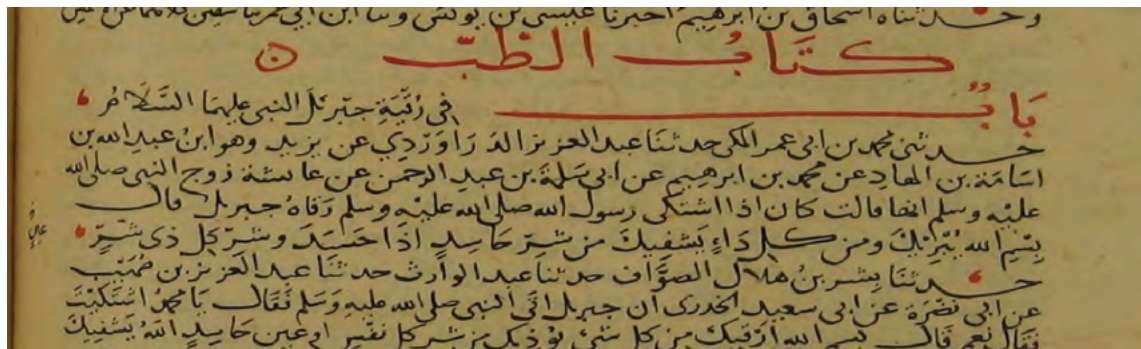 وحدثناه اسحاق بن ابرهيم اخبرنا عيسى بن يونس
كتاب الطب
باب في رقية جبرئل النبي عليهما السلام
حدثني محمد بن ابي عمر المكي حدثنا عبد العزيز الدراوردي عن يزيد وهو ابن عبد الله بن
اسامة بن الهاد عن محمد بن ابرهيم عن ابي سلمة بن عبد الرحمن عن عائشة زوج النبي صلى الله
عليه وسلم انها قالت كان اذا اشتكى رسول الله صلى الله عليه وسلم رقاه جبريل قال
بسم الله يبريك ومن كل داء يشفيك من شر حاسد اذا حسد وشر كل ذي شر
حدثنا بشر بن هلال الصواف حدثنا عبد الوارث حدثنا عبد العزيز بن صهيب
عن ابي نضرة عن ابي سعيد الخدري ان جبريل اتى النبي صلى الله عليه وسلم فقال يا محمد اشتكيت
فقال نعم قال بسم الله ارقيك من كل شئ يوذيك من شر كل نفس او عين حاسد الله يشفيك